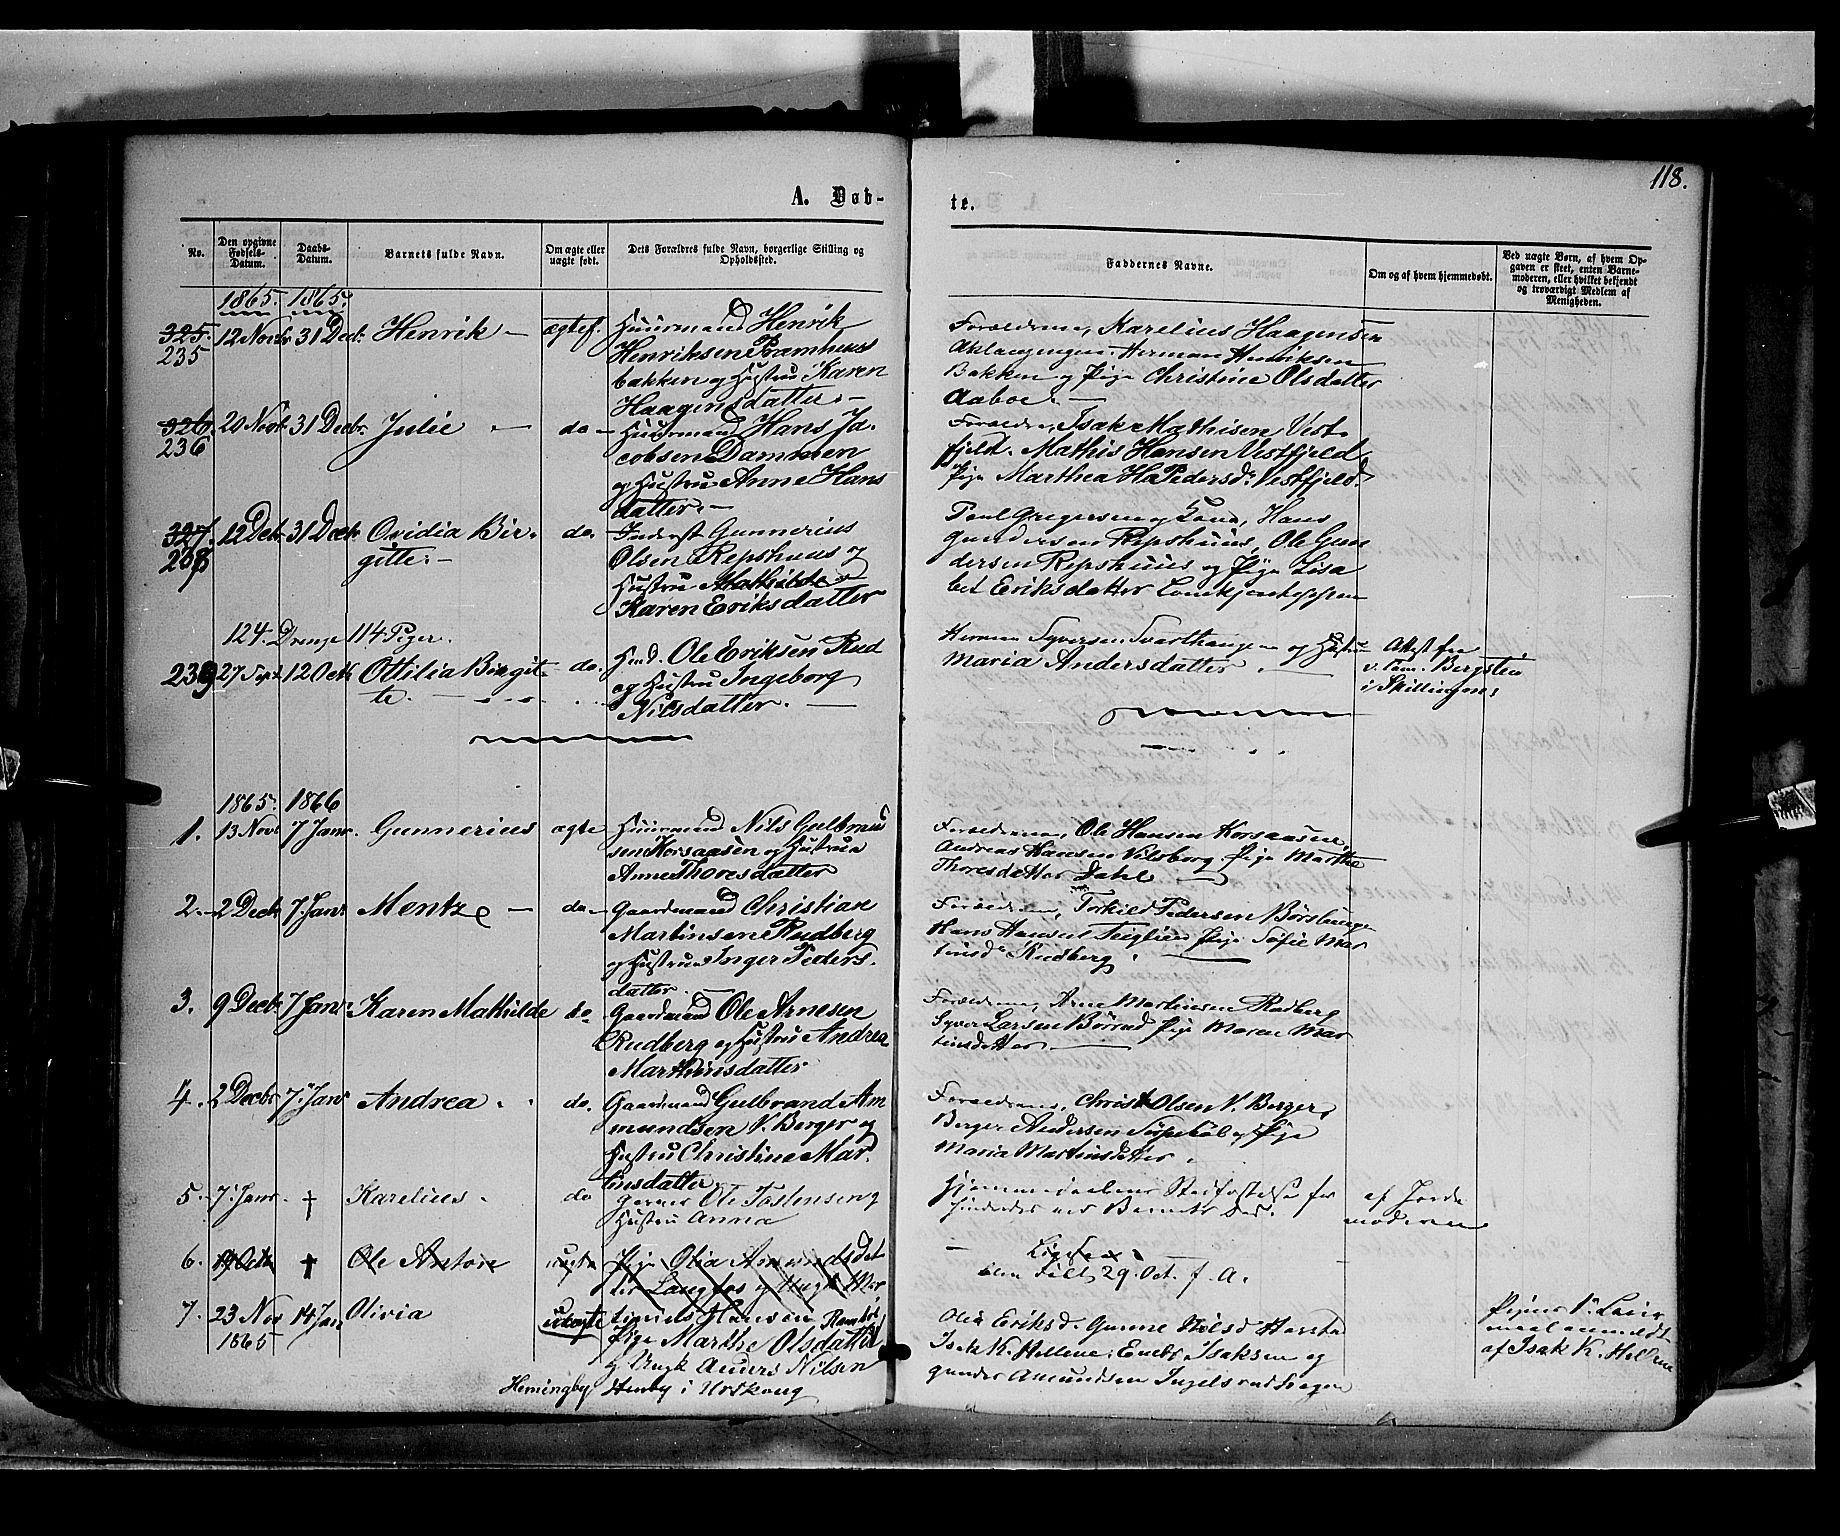 118.
A. Døb-
te.
No.
Den opgivne Fødsels-Datum.
Daabs-Datum.
Barnets fulde Navn.
Om ægte eller uægte født.
Dets Forældres fulde Navn, borgerlige Stilling og Opholdssted.
Faddernes Navne.
Om og af hvem hjemmedøbt.
Ved uægte Børn, af hvem Opgaven er skeet, enten Barnemoderen, eller hvilket bekjendt og troværdigt Medlem af Menigheden.
1865. 1865.
325. 12 Novbr 31 Decbr. Henrik – ægtef. Huusmand Henrik
235 Henriksen Bramhuus
bakken og Hustru Karen
Haagensdatter –
Forældrene, Karelius Haagensen
Herman Henriksen
Bakken og Pige Christine Olsdatter
Aaboe. –
326. 20 Novb 31 Decbr. Julie – do – Huusmand Hans Ja-
236 cobsen Dammen
og Hustru Anne Hans
datter. –
Forældre, Isak Mathisen Vest-
fjeld. Mathis Hansen Vestfjeld
Pige Marthea Pedersd. Vestfjeld
327. 12 Decb 31 Decbr Ovidia Bir- do. Inderst Gunnerius
gitte. – Olsen Repshuus og
Hustru Mathilde
Karen Eriksdatter
Paul Gregersen og Kone, Hans
Gundersen Repshuus, Ole Gun
dersen Repshuus og Pige Lisa
bet Eriksdatter
124. Drenge 114 Piger.
239 27 Sept 12 Octb Ottilia Birgit- do. Hmd. Ole Eriksen Rud
te. og Hustru Ingeborg
Nilsdatter. –
Herman Syversen Svarthaugen og Hustru
Maria Andersdatter.
Attest fra
Bergsten
i Skillingm:
1865. 1866
1. 13 Novb 7 Janr. Gunnerius ægte Huusmand Nils Gulbrand
sen Korsaasen og Hustru
Anne Thoresdatter
Forældrene, Ole Hansen Korsaasen,
Andreas Hansen Nilsberg Pige Marthe
Thoresdatter Dahl
2. 2 Decbr 7. Janr Mentz – do – Gaardmand Christian
Martinsen Rudberg
og Hustru Inger Peders-
datter. –
Forældrene, Torkild Pedersen
Hans Hansen Teiglien Pige Sofie Mar
tinsd. Rudberg.
3. 9 Decbr 7 Janr Karen Mathilde do. Gaardmand Ole Arnesen
Rudberg og Hustru Andrea
Marthinsdatter
Forældrene, Arne Martinsen Rudberg
Syver Larsen Børrud Pige Maren Mar
tinsdatter
4. 2 Decbr 7. Janr Andrea. do. Gaardmand Gulbrand Am
mundsen V. Berger og
Hustru Christine Mar
tinsdatter
Forældrene, Christ Olsen V. Berger,
Berger Andersen og Pige
Maria Martinsdatter.
5. 7 Janr. † Karelius. do Ole Tostensen og
Hustru Anna
Hjemmedaabens Stadfæstelse for
hindredes ved Barnets Død.
af Jorde
moderen
6. 19 Octb † Ole Anton uægte Pige Olia Amundsdat
ter Langfos og Ungk Mar
tinius Hansen
Ligesaa
29. Oct. f. A.
7. 23 Nov 14 Jan Olivia uægte
1865 Pige Marthe Olsdatter
og Ungk Anders Nilsen
Hemingby Henby i Urskoug
Olia Eriksd. Gunne Nilsd Harstad
Isak K. Hellene, Isaksen og
Gunder Amundsen
Pigens
af Isak K. Hellene